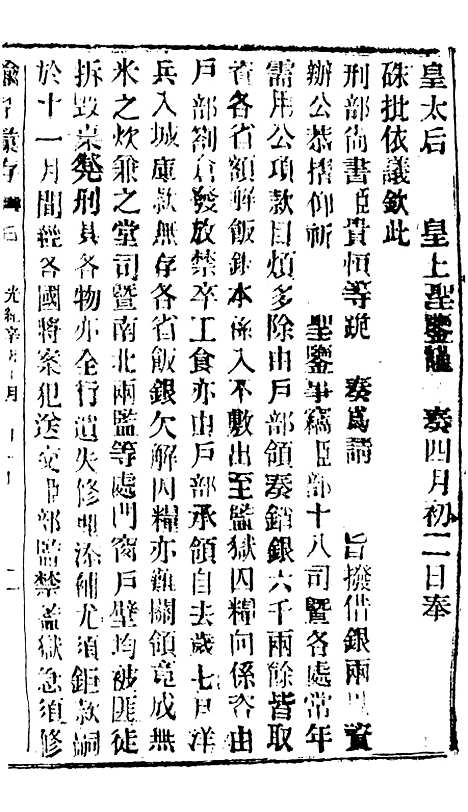 皇太后　皇上聖鑒謹　奏四月初二日奉
硃批依議欽此
刑部尚書臣貴恒等跪　奏爲請　旨撥借銀兩以資
辦公恭摺仰祈　聖鑒事竊臣部十八司暨各處常年
需用公項款目煩多除由戶部領奏銷銀六千兩餘皆取
資各省額解飯銀本係入不敷出至監獄囚糧向係咨由
戶部劄倉發放禁卒工食亦由戶部承領自去歲七月洋
兵入城庫款無存各省飯銀欠解囚糧亦難關領竟成無
米之炊兼之堂司暨南北兩監等處門窗戶壁均被匪徒
拆毀桌凳刑具各物亦全行遺失修理添補尤須鉅款嗣
於十一月間經各國將案犯送交臣部監禁監獄急須修
諭摺彙存　光緒辛丑　月